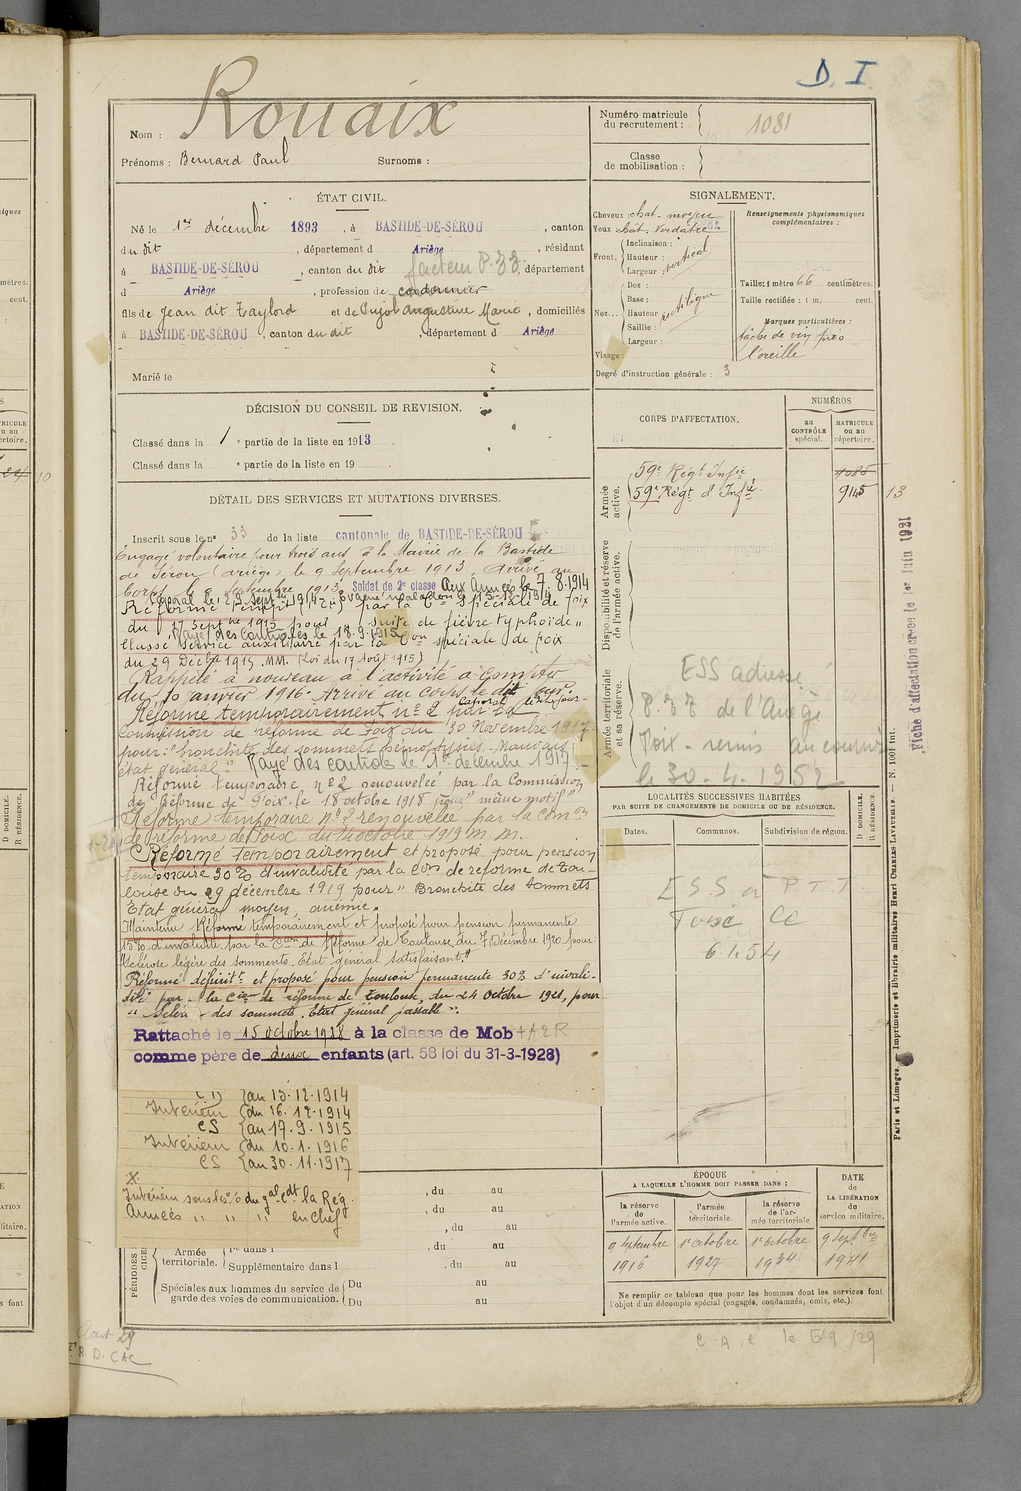 D. I.
Nom : Rouaix
Prénoms : Bernard Paul Surnoms :
Numéro matricule du recrutement : 1081
Classe de mobilisation :
ÉTAT CIVIL.
Né le 1er décembre 1893, à BASTIDE-DE-SÉROU, canton
du dit, département d Ariège, résidant
à BASTIDE-DE-SÉROU, canton du dit, département
facteur P.
d Ariège, profession de cordonnier
fils de Jean dit Taylord et de Pujol Augustine Marie, domiciliés
à BASTIDE-DE-SÉROU, canton du dit, département d Ariège
Marié le
SIGNALEMENT.
Cheveux chat. moyen
Yeux chât. verdâtre
Front. Inclinaison :
Hauteur : vertical
Largeur :
Nez... Dos :
Base : rectiligne
Hauteur
Saillie :
Largeur :
Visage :
Degré d'instruction générale : 3
Renseignements physionomiques complémentaires :
Taille: 1 mètre 66 centimètres.
Taille rectifiée : 1 m. cent.
Marques particulières :
tâche de vin près
l'oreille
DÉCISION DU CONSEIL DE REVISION.
Classé dans la 1e partie de la liste en 1913.
Classé dans la e partie de la liste en 19 .
CORPS D'AFFECTATION.
NUMÉROS
au CONTRÔLE spécial.
MATRICULE ou au répertoire.
Armée active.
59e Régt Infie 1085
59e Régt d'Infie 9145 13
Disponibilité et réserve de l'armée active.
Armée territoriale et sa réserve.
ESS adressé
de l'Ariège
Foix - remis au courrier
le 30.4.1952
Fiche d'affectation créée le 1er Juin 1921
DÉTAIL DES SERVICES ET MUTATIONS DIVERSES.
Inscrit sous le n° 33 de la liste cantonale de BASTIDE-DE-SÉROU
Engagé volontaire pour trois ans à la Mairie de la Bastide
de Sérou (Ariège) le 9 Septembre 1913. Arrivé au
Corps le Septembre 1913, Soldat de 2e classe Aux Armées le 7.8.1914
Caporal le 29 Septbre 1914. Evacué malade le 15-12-1914
Réformé tempre n° 2 par la Con Spéciale de Foix
du 17 Septbre 1915 pour suite de fièvre typhoïde"
Rayé des contrôles le 18.9.1915
Classé service auxiliaire par la Con spéciale de Foix
du 29 Décbre 1915. MM. (Loi du 17 Août 1915)
Rappelé à nouveau à l'activité à compter
du 10 janvier 1916. Arrivé au corps le dit jour
Réformé temporairement n° 2 par la
Commission de réforme de Foix du 30 Novembre 1917
pour: "bronchite des sommets, hémoptysies. Mauvais
état général". Rayé des contrôles le 1er décembre 1917.
Réforme temporaire n° 2 renouvelée par la Commission
de Réforme de Foix le 18 octobre 1918 pour "même motif"
Réforme temporaire N° 2 renouvelée par la Comon
de réforme de Foix du octobre 1919 m. m.
Réformé temporairement et proposé pour pension
temporaire 30% d'invalidité par la Con de réforme de Tou-
louse du 29 décembre 1919 pour "Bronchite des sommets
État général moyen, anémie.
Maintenu Réformé temporairement et proposé pour pension permanente
15% d'invalidité par la Con de Réforme de Toulouse du 7 Décembre 1920 pour:
"Sclérose légère des sommets. Etat général satisfaisant."
Réformé définitt et proposé pour pension permanente 30% d'invali-
dité par la Cion de réforme de Toulouse, du 24 octobre 1921, pour
"Sclér. des sommets. Etat général passable".
Rattaché le 15 octobre 1928 à la classe de Mob
comme père de deux enfants (art. 58 loi du 31-3-1928)
au 15.12.1914
Intérieur du 16.12.1914
CS au 17.9.1915
Intérieur du 10.1.1916
CS au 30.11.1917
Intérieur sous les o. du gal cdt la Rég.
Armées " " " en chef
LOCALITÉS SUCCESSIVES HABITÉES
PAR SUITE DE CHANGEMENTS DE DOMICILE OU DE RÉSIDENCE.
Dates. Communes. Subdivision de région.
D. DOMICILE.
R. RÉSIDENCE.
ESS P T T
Foix
6.1.54
, du au
, du au
, du au
, du au
Armée territoriale. 1re dans l , du au
Supplémentaire dans l , du au
Spéciales aux hommes du service de garde des voies de communication. Du au
Du au
ÉPOQUE
A LAQUELLE L'HOMME DOIT PASSER DANS :
la réserve de l'armée active.
l'armée territoriale.
la réserve de l'armée territoriale
DATE de LA LIBÉRATION du service militaire.
9 septembre 1916
1er octobre 1927
1er octobre 1934
9 septbre 1941
Ne remplir ce tableau que pour les hommes dont les services font
l'objet d'un décompte spécial (engagés, condamnés, omis, etc.).
C.A.C le 5/9/29
D. CAC
Paris et Limoges. — Imprimerie et librairie militaires Henri CHARLES-LAVAUZELLE. — N. 1001 int.